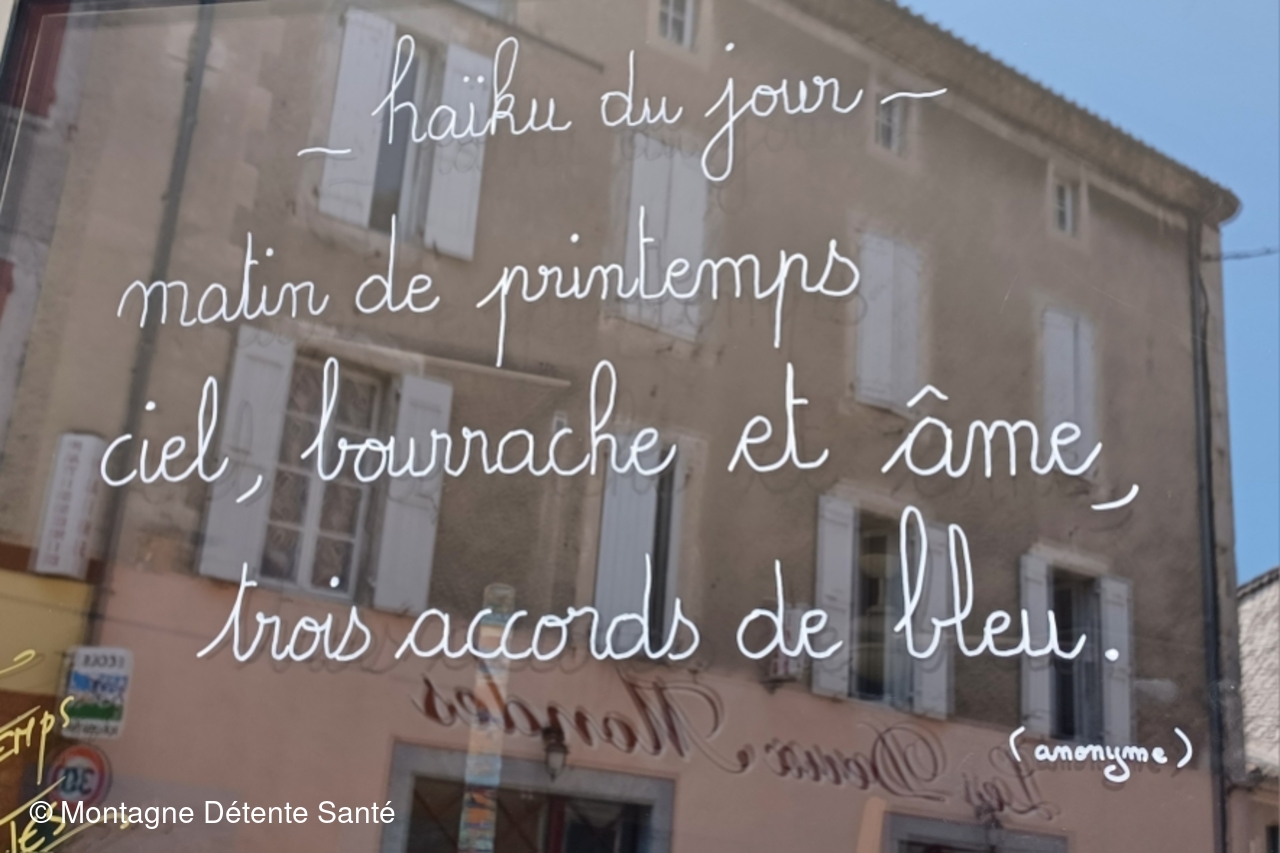 ~ haïku du jour ~
matin de printemps
ciel, bourrache et âme,
trois accords de bleu.
(anonyme)
Les Deux Mondes
30
© Montagne Détente Santé